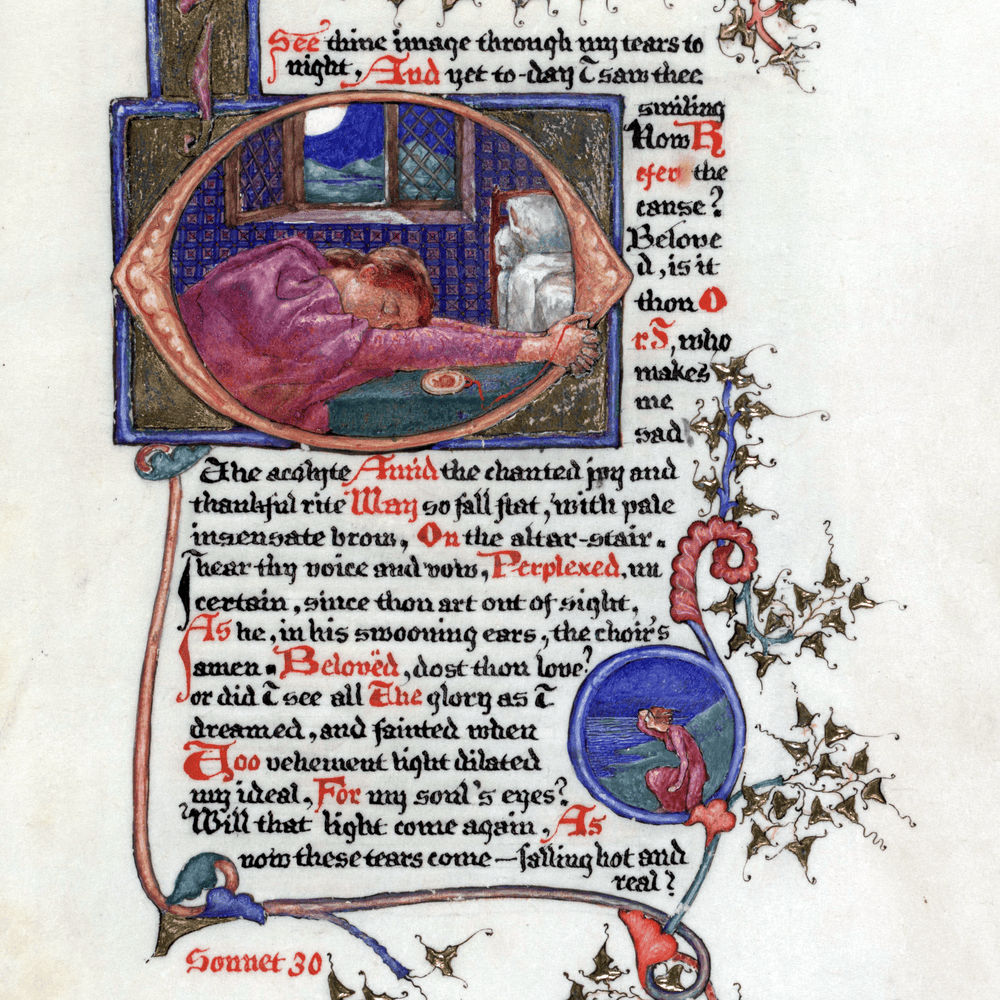 See thine image through my tears to
night, And yet to-day I saw thee
smiling
How R
efer the
cause?
Belove
d, is it
thou O
r I, who
makes
me
sad
The acolyte Amid the chanted joy and
thankful rite May so fall flat, with pale
insensate brow, On the altar-stair.
I hear thy voice and vow, Perplexed, un
certain, since thou art out of sight,
As he, in his swooning ears, the choir's
amen. Belovëd, dost thou love?
or did I see all The glory as I
dreamed, and fainted when
Too vehement light dilated
my ideal, For my soul's eyes?
Will that light come again, As
now these tears come — falling hot and
real?
Sonnet 30